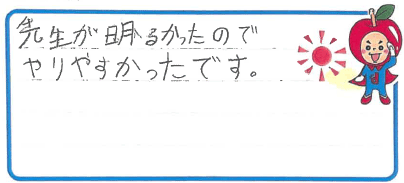 先生が明るかったので
やりやすかったです。